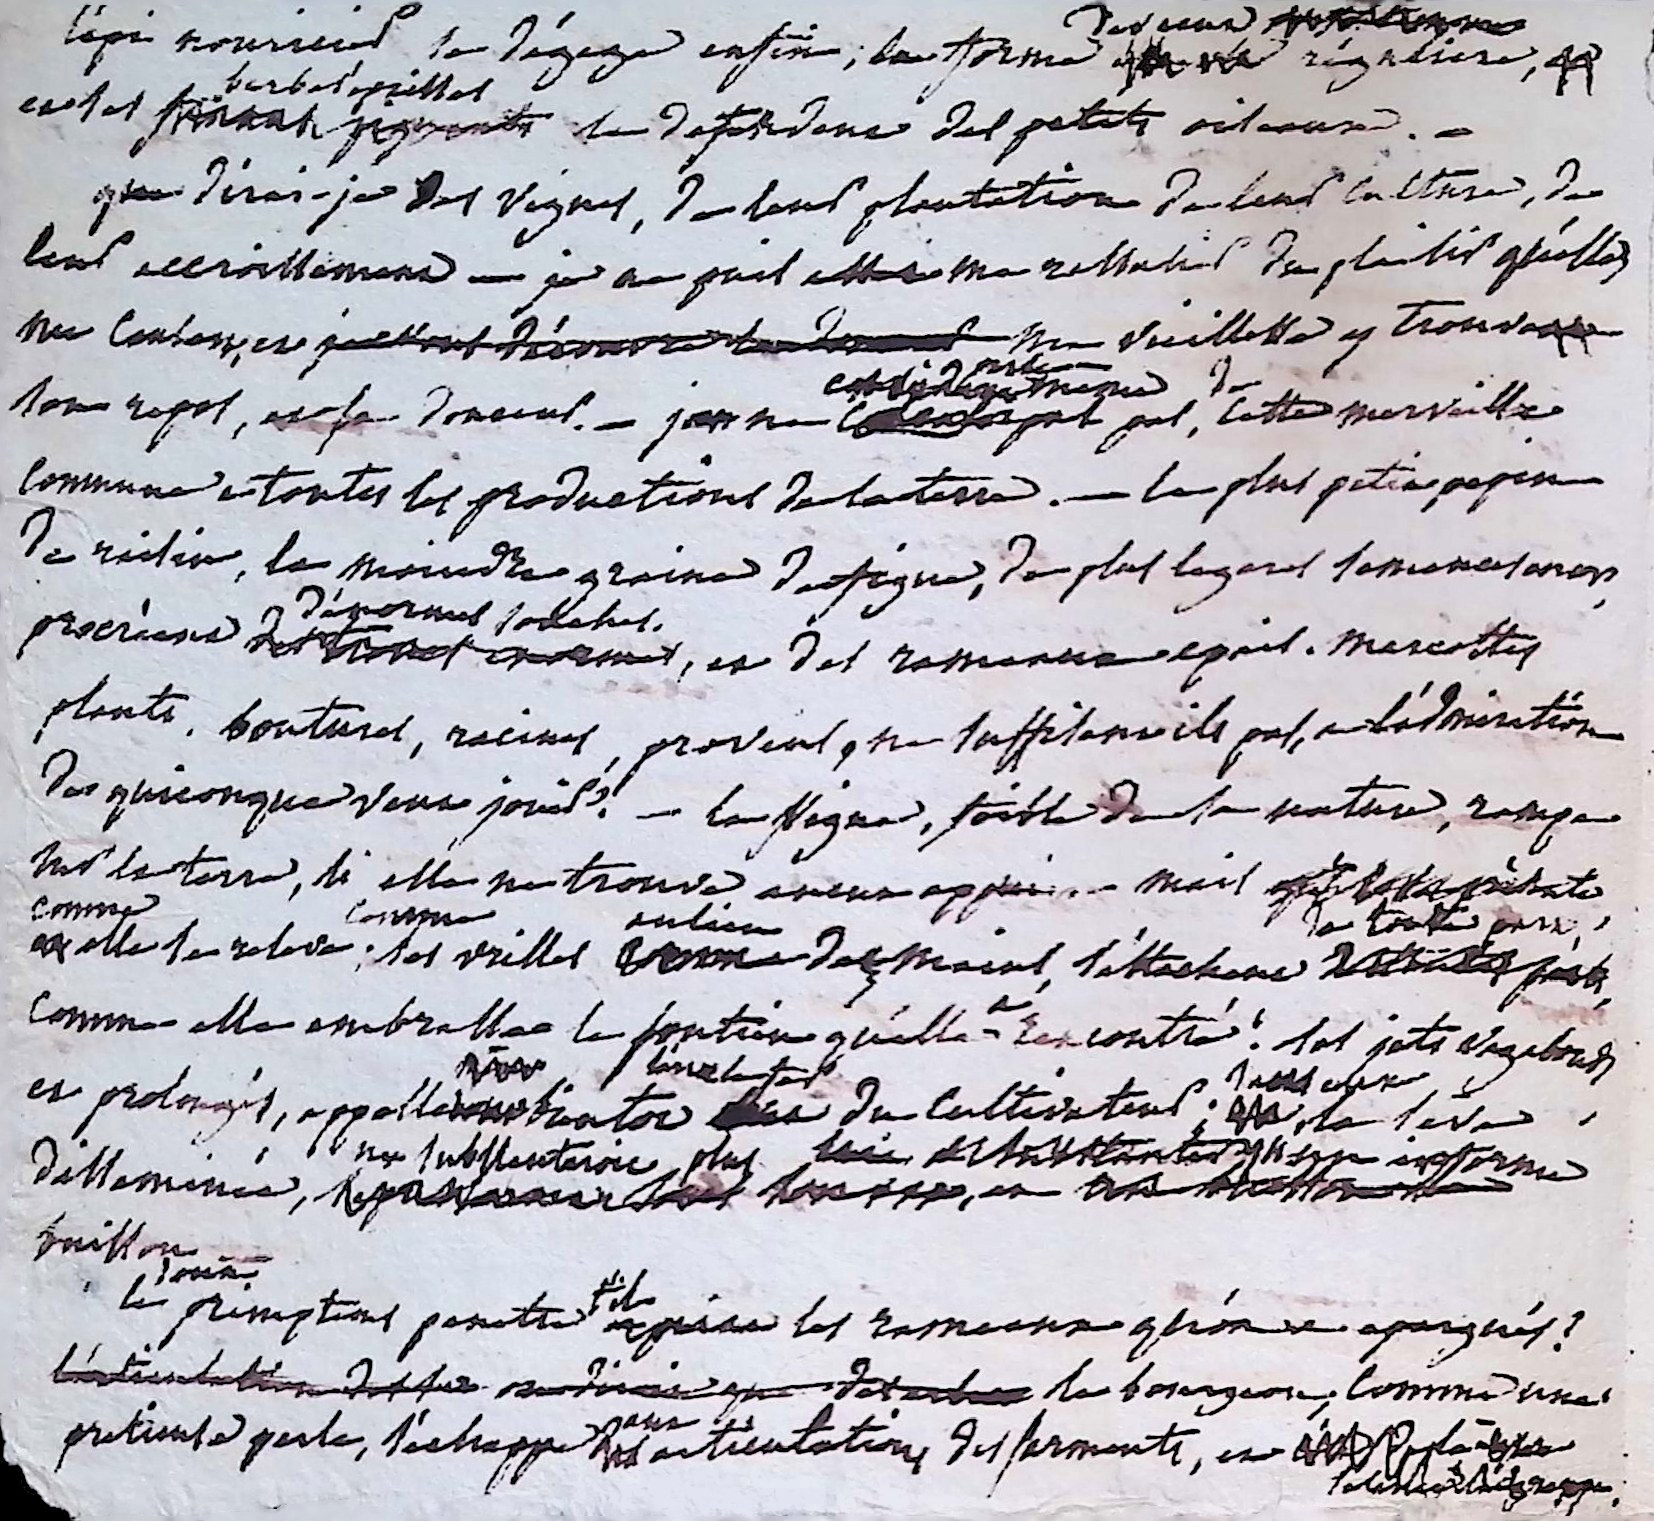 l'épi nourricier se dégage enfin; sa forme devenue régulière,
et les barbes épisses le défendent des petits oiseaux. —
que dirai-je des vignes, de leur plantation de leur culture, de
leur accroissement — je ne puis me rassasier du plaisir qu'elles
me causent, et ma vieillesse y trouve
son repos, et sa douceur. — je ne pas, de cette merveille
commune a toutes les productions de la terre. — le plus petit pepin
de raisin, la moindre graine de figue, de plus legeres semences encor,
procréent d'énormes souches, et des rameaux epais. marcottes
plants, boutures, racines, provins, ne suffisent ils pas, a l'admiration
de quiconque veut jouir? — la vigne, foible de sa nature, rampe
sur la terre, si elle ne trouve aucun appui. — mais
comme elle se releve; comme ses vrilles au lieu de mains, s'attachent de toute part,
comme elle embrasse le soutien qu'elle a rencontré! ses jets vagabonds
et prolongés, appellent du cultivateur; sans eux, la seve
disseminée, ne substanteroit plus qu'un informe
buisson
le doux printems penetre t'il les rameaux qu'on a epargnés?
le bourgeon, comme une
pretieuse perle, s'echappe aux articulations des sarments, et